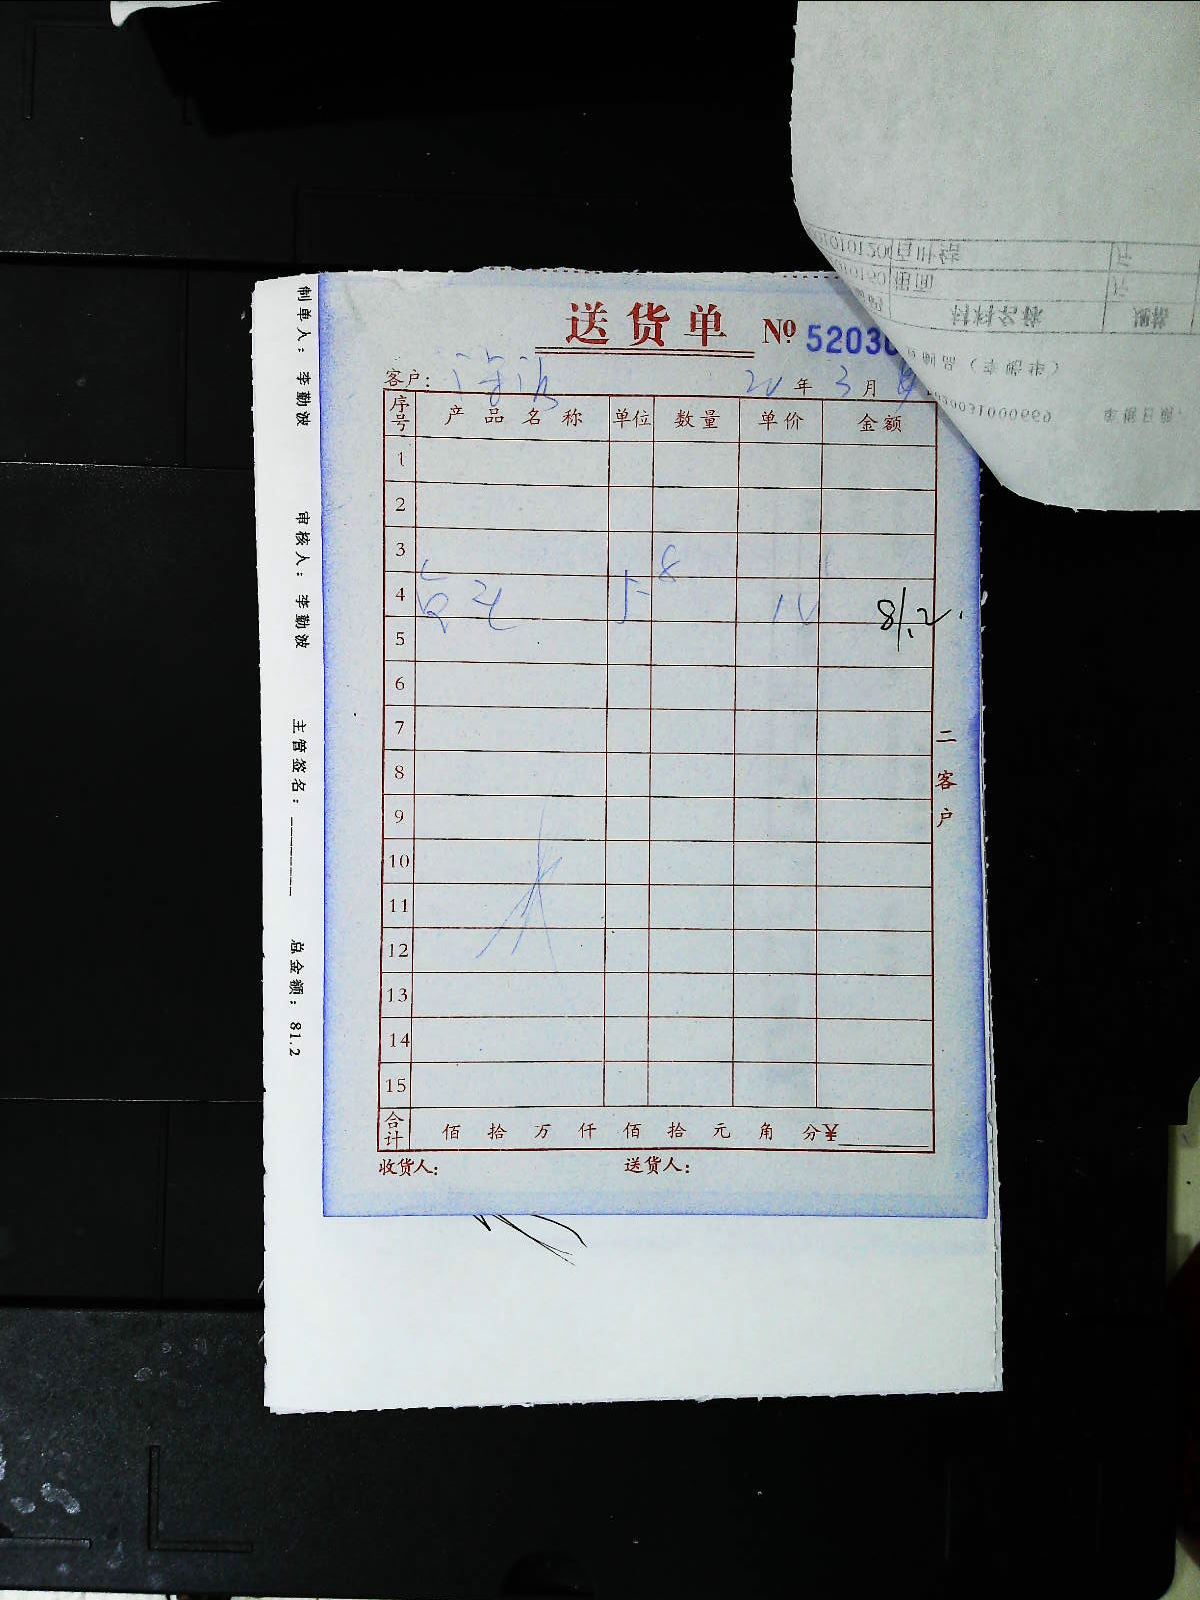 送货单 Nº 52030
客户： 20 年 3 月
序号 产品名称 单位 数量 单价 金额
1
2
3
8
4 12 81.2
5
6
7
8
9
10
11
12
13
14
15
合计 佰 拾 万 仟 佰 拾 元 角 分 ¥
收货人： 送货人：
二客户
制单人：李勤波 审核人：李勤波 主管签名：________ 总金额：81.2
材料名称 规格
粗面 斤
百叶结 斤